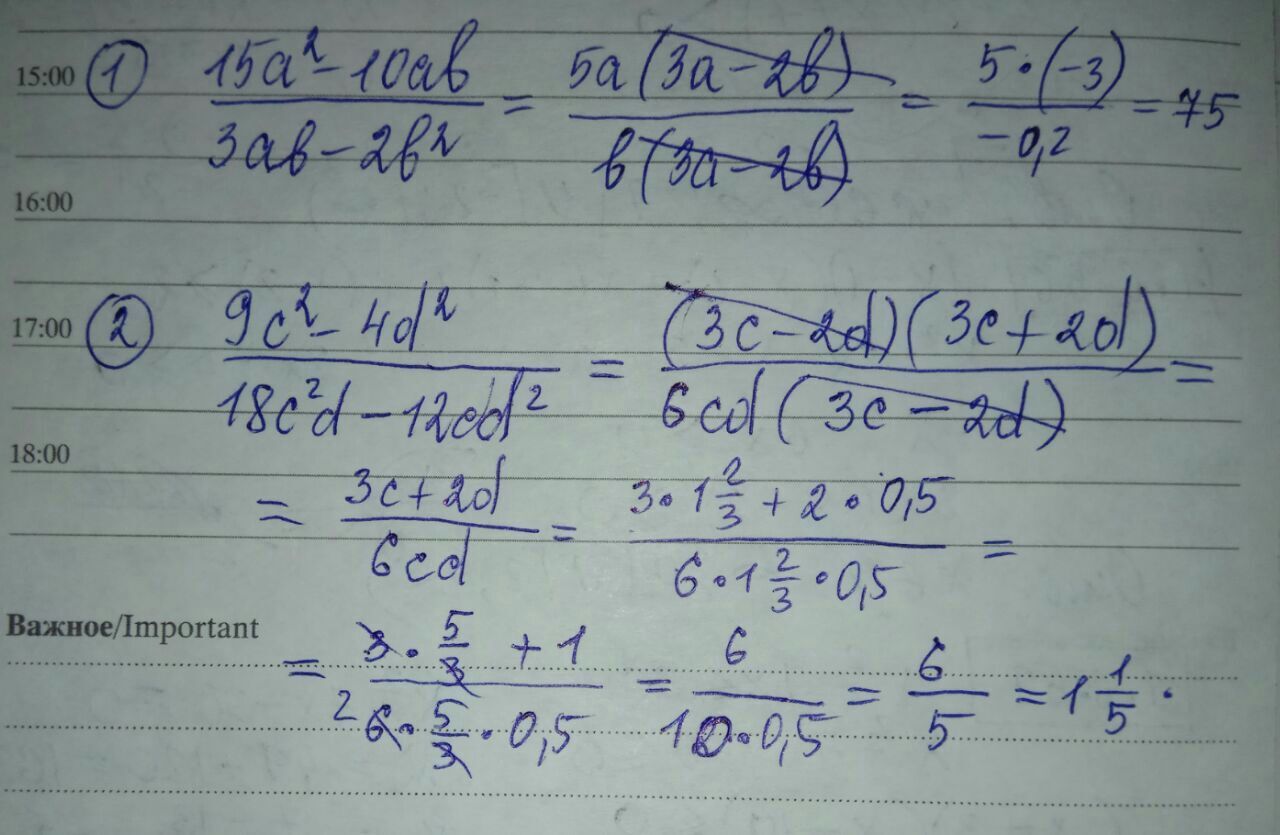 15:00 ① (15a² - 10ab)/(3ab - 2b²) = 5a(3a - 2b)/b(3a - 2b) = 5·(-3)/-0,2 = 75
16:00
17:00 ② (9c² - 4d²)/(18c²d - 12cd²) = (3c - 2d)(3c + 2d)/6cd(3c - 2d) =
18:00
= (3c + 2d)/6cd = (3·1 2/3 + 2·0,5)/(6·1 2/3·0,5) =
Важное/Important
= (3·5/3 + 1)/(2 6·5/3·0,5) = 6/(10·0,5) = 6/5 = 1 1/5.